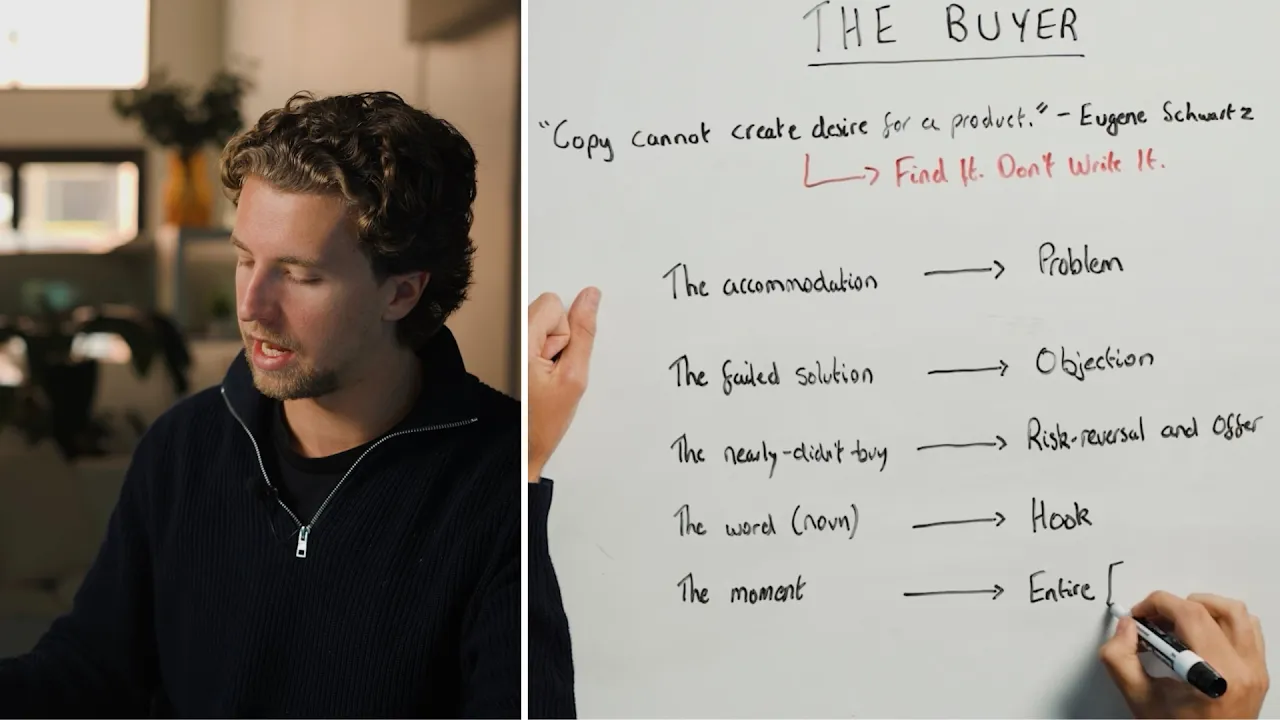 THE BUYER
"Copy cannot create desire for a product." - Eugene Schwartz
Find It. Don't Write It.
The accommodation → Problem
The failed solution → Objection
The nearly-didn't-buy → Risk-reversal and Offer
The word (noun) → Hook
The moment → Entire